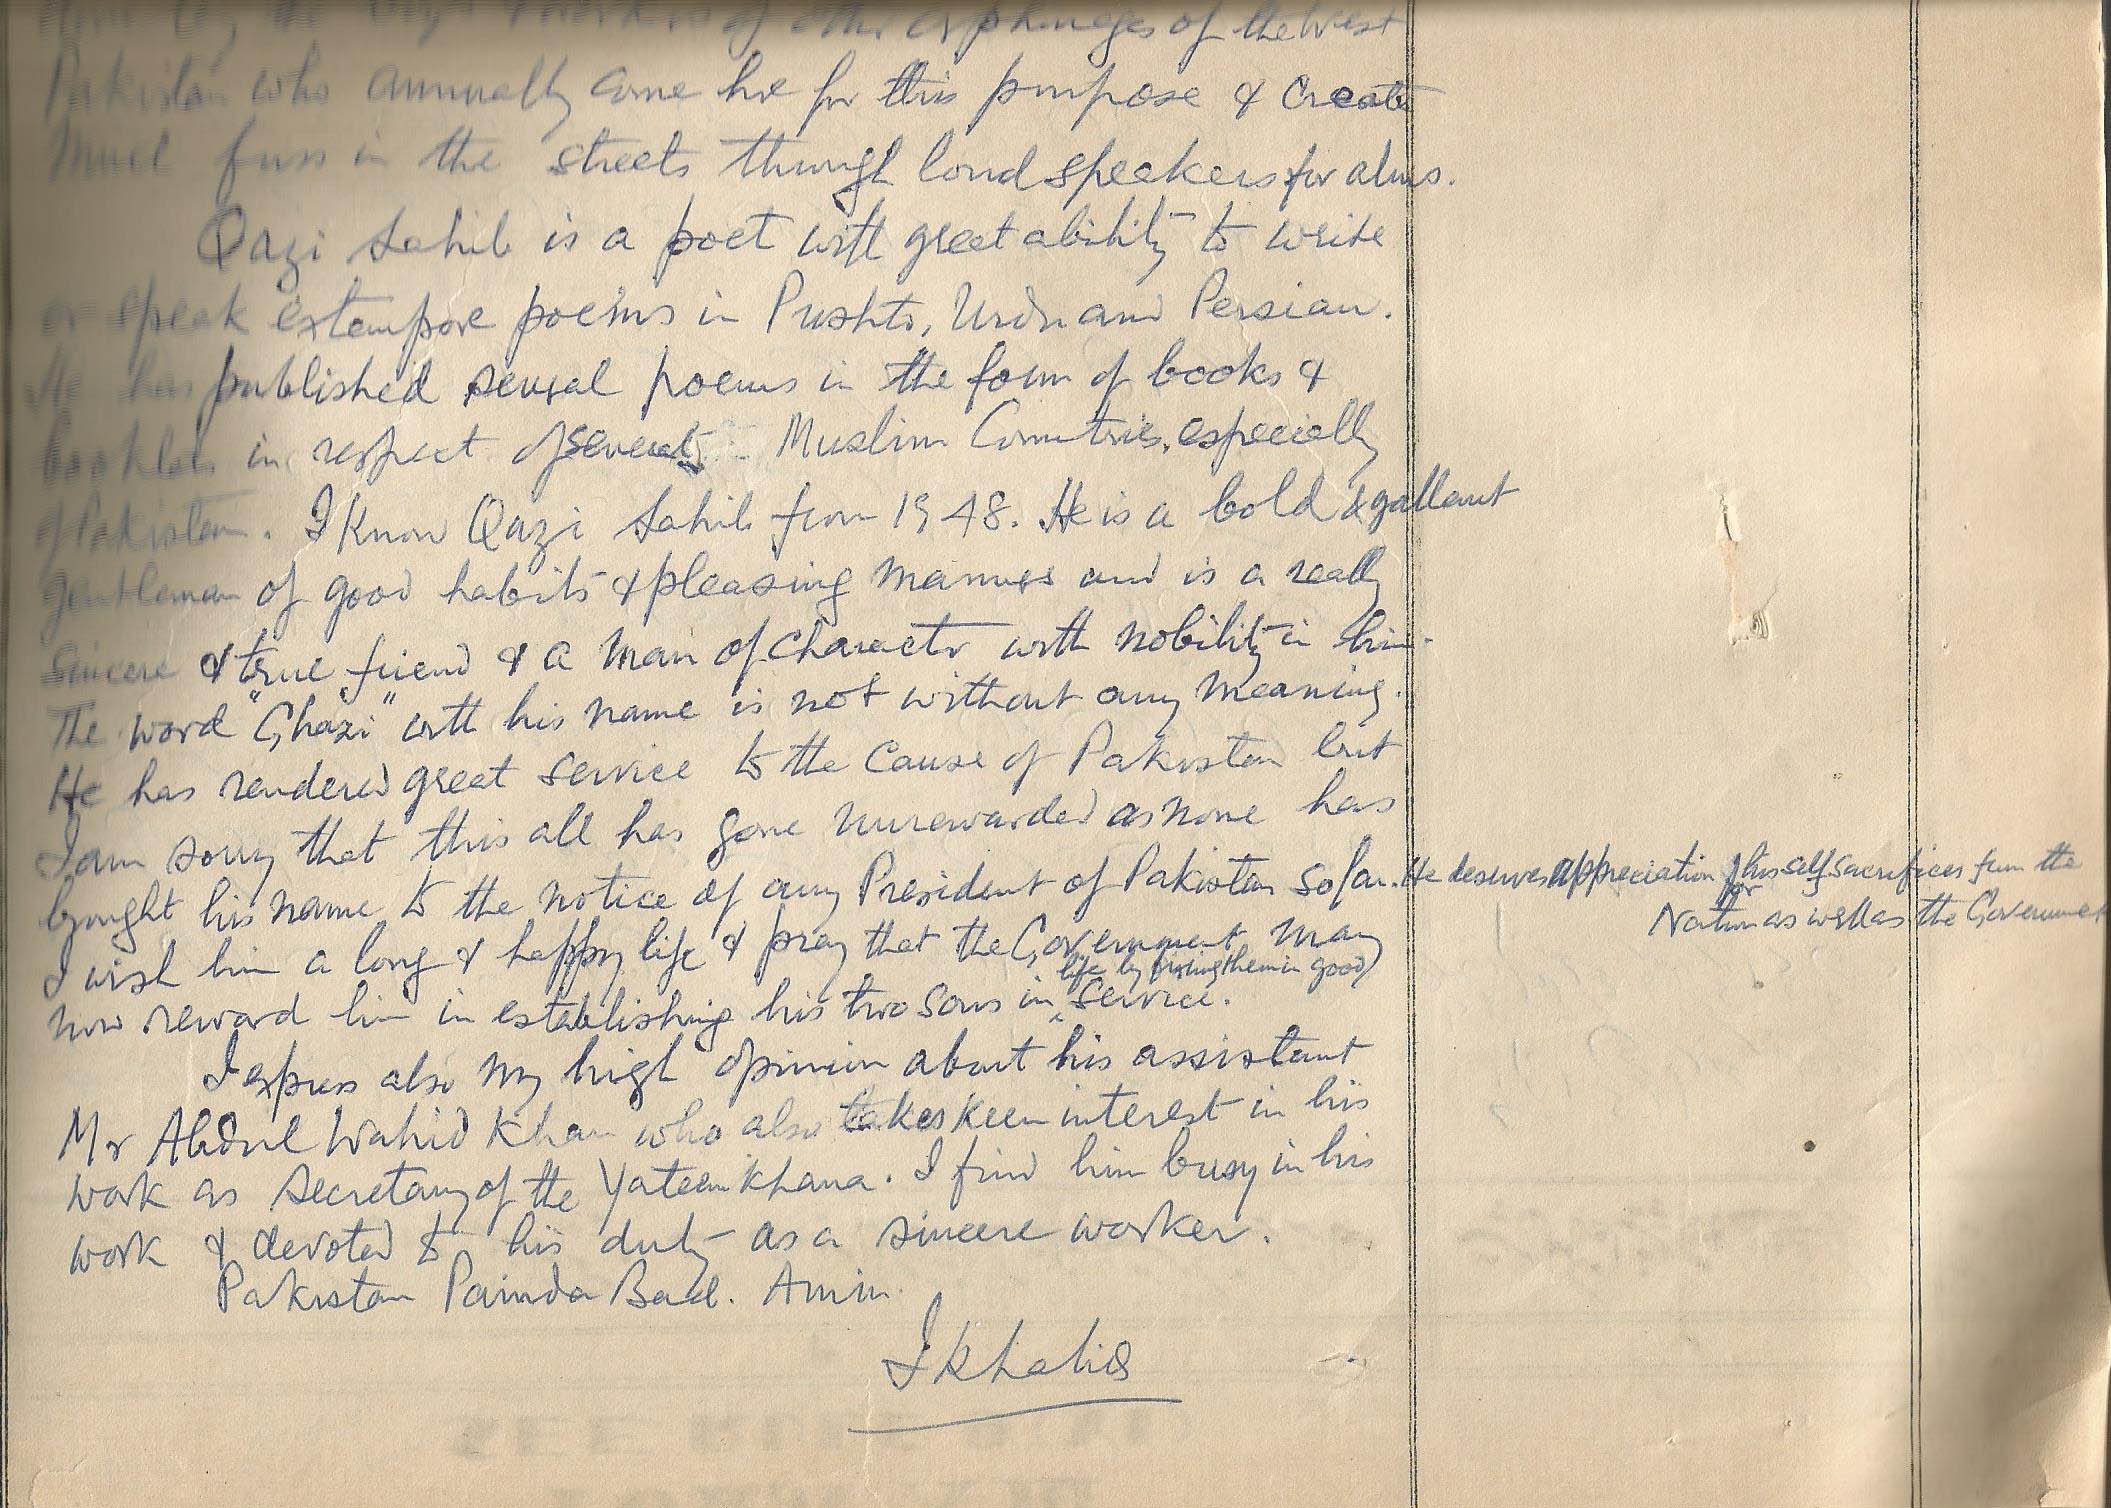 of other orphanages of the West
Pakistan who annually come here for this purpose & create
much fuss in the streets through loud speakers for alms.
Qazi Sahib is a poet with great ability to write
or speak extempore poems in Pushto, Urdu and Persian.
He has published several poems in the form of books &
booklets in respect of several Muslim Countries, especially
of Pakistan. I know Qazi Sahib from 1948. He is a bold & gallant
gentleman of good habits & pleasing manners and is a really
sincere & true friend & a man of character with nobility in him.
The word "Ghazi" with his name is not without any meaning.
He has rendered great service to the cause of Pakistan but
I am sorry that this all has gone unrewarded as none has
brought his name to the notice of any President of Pakistan so far. He deserves appreciation for his self sacrifices from the
Nation as well as the Government
I wish him a long & happy life & pray that the Government may
life by fixing them in good
now reward him in establishing his two sons in service.
I express also my high opinion about his assistant
Mr Abdul Wahid Khan who also takes keen interest in his
work as Secretary of the Yateemkhana. I find him busy in his
work & devoted to his duty as a sincere worker.
Pakistan Painda Bad. Amin.